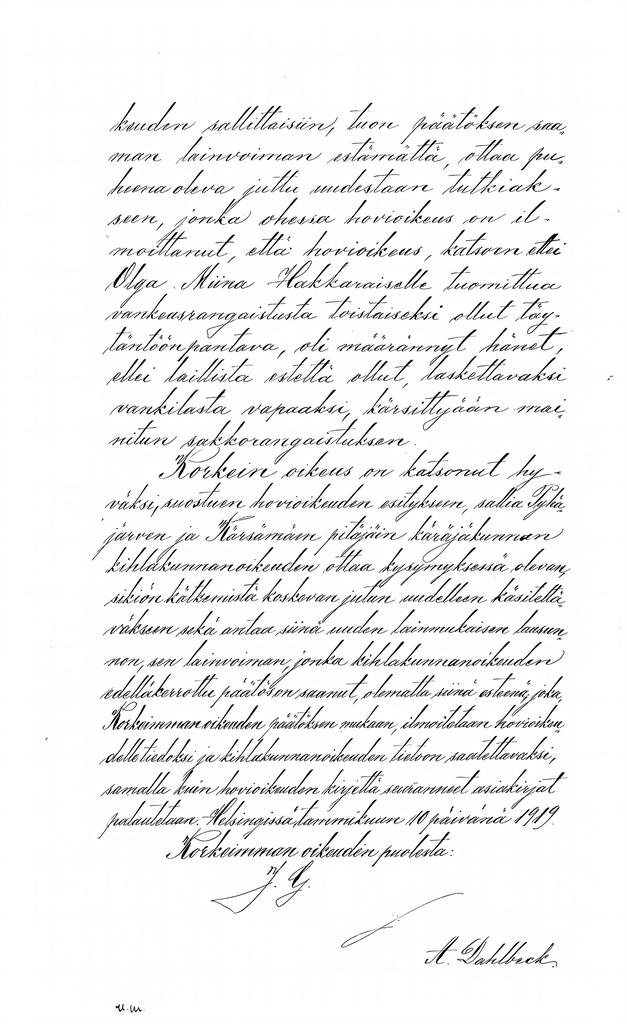 keuden sallittaisiin, tuon päätöksen saa-
man lainvoiman estämättä, ottaa pu-
heena oleva juttu uudestaan tutkiak-
seen, jonka ohessa hovioikeus on il-
moittanut, että hovioikeus, katsoen ettei
Olga Miina Hakkaraiselle tuomittua
vankeusrangaistusta toistaiseksi ollut täy-
täntöönpantava, oli määrännyt hänet,
ellei laillista estettä ollut, laskettavaksi
vankilasta vapaaksi, kärsittyjään mai-
nitun sakkorangaistuksen.
Korkein oikeus on katsonut hy-
väksi, suostuen hovioikeuden esitykseen, sallia Pyhä-
järven ja Kärsämäen pitäjäin käräjäkunnan
kihlakunnanoikeuden ottaa kysymyksessä olevan,
sikiön kätkemistä koskevan jutun uudelleen käsiteltä-
väkseen sekä antaa siinä uuden lainmukaisen lausun-
non, sen lainvoiman, jonka kihlakunnanoikeuden
edelläkerrottu päätös on saanut, olematta siinä esteenä; joka,
Korkeimman oikeuden päätöksen mukaan, ilmoitetaan hovioikeu-
delle tiedoksi ja kihlakunnanoikeuden tietoon saatettavaksi,
samalla kuin hovioikeuden kirjettä seuranneet asiakirjat
palautetaan. Helsingissä, tammikuun 10 päivänä 1919.
Korkeimman oikeuden puolesta:
J. G.
A. Dahlbeck.